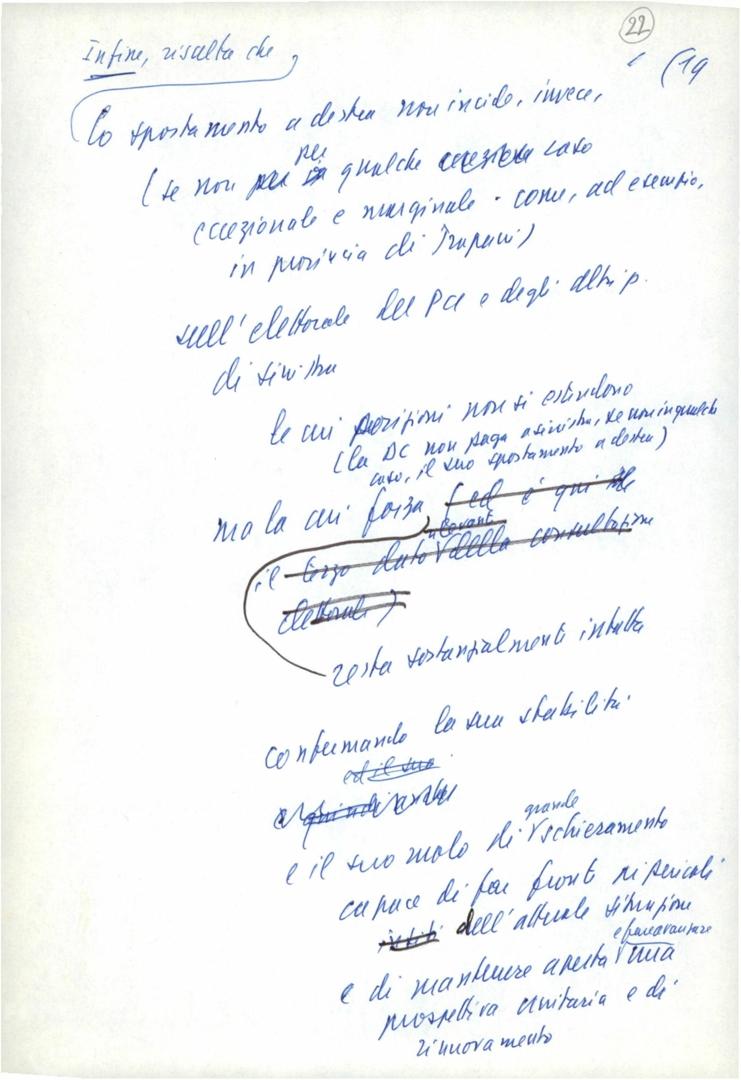 22
(19
Infine, risulta che
lo spostamento a destra non incide, invece,
per
(se non per in qualche eccezione caso
eccezionale e marginale - come, ad esempio,
in provincia di Trapani)
sull'elettorale del PCI e degli altri p.
di sinistra
le cui posizioni non si estendono
(la DC non paga a sinistra, se non in qualche
caso, il suo spostamento a destra)
ma la cui forza (ed è qui
rilevante
il terzo dato della consultazione
elettorale)
resta sostanzialmente intatta
confermando la sua stabilità
ed il suo
e quindi anche
grande
e il suo ruolo di schieramento
capace di far fronte ai pericoli
dell'attuale situazione
e fare avanzare
e di mantenere aperta una
prospettiva unitaria e di
rinnovamento